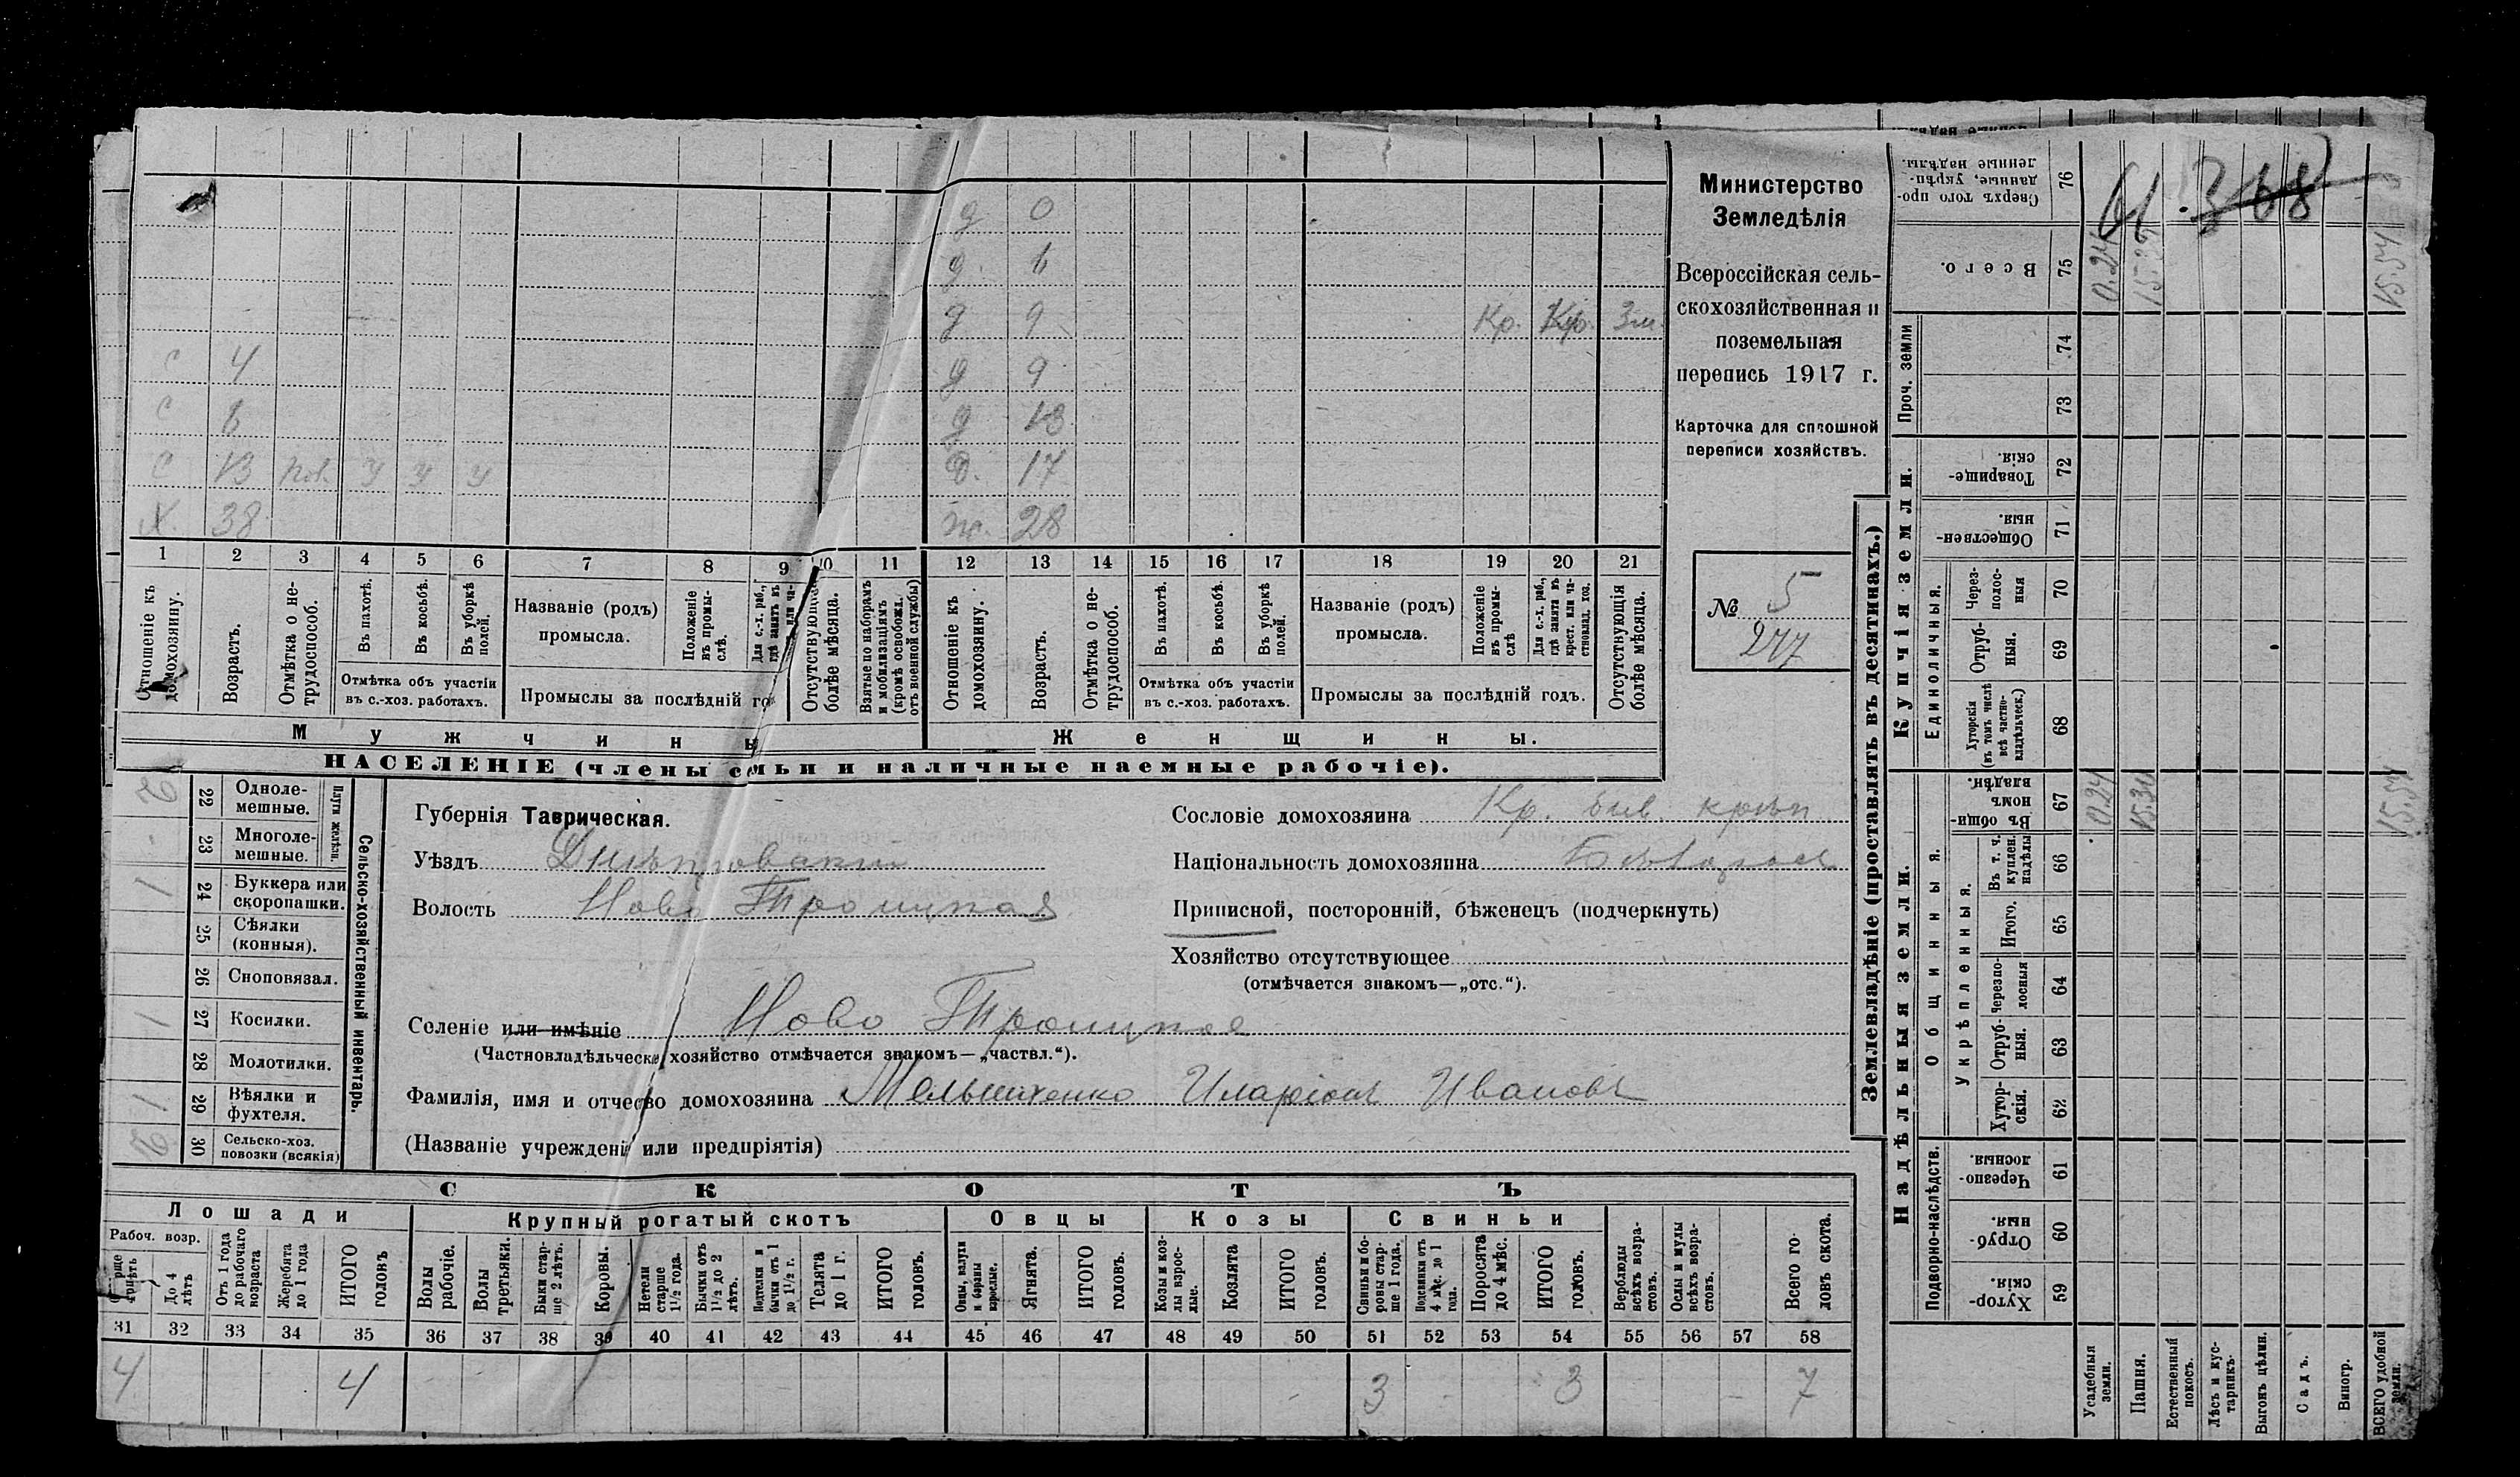 Министерство
Земледѣлія
Всероссійская сель-
скохозяйственная и
поземельная
перепись 1917 г.
Карточка для сплошной
переписи хозяйствъ.
№ 5
277
д 0
д. 6
д 9 Кр. Кр. Зм.
с 4 д 9
с 8 д 13
с 13 пол. у у у д. 17
х. 38 ж. 28
1 2 3 4 5 6 7 8 9 10 11 12 13 14 15 16 17 18 19 20 21
Отношеніе къ домохозяину.
Возрастъ.
Отмѣтка о не-трудоспособ.
Въ пахотѣ.
Въ косьбѣ.
Въ уборкѣ полей.
Отмѣтка объ участіи
въ с.-хоз. работахъ.
Названіе (родъ)
промысла.
Положеніе въ промы-слѣ.
Для с.-х. раб., гдѣ занятъ въ
Промыслы за послѣдній го
Отсутствующіе болѣе мѣсяца.
Взятые по наборамъ и мобилизаціямъ (кромѣ освобожд. отъ военной службы)
Отношеніе къ домохозяину.
Возрастъ.
Отмѣтка о не-трудоспособ.
Въ пахотѣ.
Въ косьбѣ.
Въ уборкѣ полей.
Отмѣтка объ участіи
въ с.-хоз. работахъ.
Названіе (родъ)
промысла.
Положеніе въ промы-слѣ
Для с.-х. раб., гдѣ занята въ крест. или ча-стновлад. хоз.
Промыслы за послѣдній годъ.
Отсутствующія болѣе мѣсяца.
Мужчины
Женщины.
НАСЕЛЕНІЕ (члены семьи и наличные наемные рабочіе).
Сельско-хозяйственный инвентарь.
Плуги желѣзн.
22 Одноле-мешные.
23 Многоле-мешные.
1 24 Буккера или скоропашки.
25 Сѣялки (конныя).
26 Сноповязал.
1 27 Косилки.
28 Молотилки.
1 29 Вѣялки и фухтеля.
2 30 Сельско-хоз. повозки (всякія)
Губернія Таврическая.
Уѣздъ Днѣпровскій
Волость Ново Троицкая
Селеніе или имѣніе Ново Троицкое
(Частновладѣльческ хозяйство отмѣчается знакомъ—„частвл.“).
Фамилія, имя и отчество домохозяина Мельниченко Иларіонъ Ивановъ
(Названіе учрежденія или предпріятія)
Сословіе домохозяина Кр. быв. крѣп.
Національность домохозяина
Приписной, посторонній, бѣженецъ (подчеркнуть)
Хозяйство отсутствующее
(отмѣчается знакомъ—„отс.“).
СКОТЪ
Лошади
Рабоч. возр.
До 4 лѣтъ
Отъ 1 года до рабочаго возраста
Жеребята до 1 года
ИТОГО головъ
Крупный рогатый скотъ
Волы рабочіе.
Волы третьяки.
Быки стар-ше 2 лѣтъ.
Коровы.
Нетели старше 1½ года.
Бычки отъ 1½ до 2 лѣтъ.
Подтелки и бычки отъ 1 до 1½ г.
Телята до 1 г.
ИТОГО головъ.
Овцы
Овцы, валухи и бараны взрослые.
Ягнята.
ИТОГО головъ.
Козы
Козы и коз-лы взрос-лые.
Козлята
ИТОГО головъ.
Свиньи
Свиньи и бо-ровы стар-ше 1 года.
Подсвинки отъ 4 мѣс. до 1 года.
Поросята до 4 мѣс.
ИТОГО головъ.
Верблюды всѣхъ возра-стовъ.
Ослы и мулы всѣхъ возра-стовъ.
Всего го-ловъ скота.
31 32 33 34 35 36 37 38 39 40 41 42 43 44 45 46 47 48 49 50 51 52 53 54 55 56 57 58
4 4 3 3 7
Землевладѣніе (проставлять въ десятинахъ.)
Надѣльныя земли.
Купчія земли.
Проч. земли
Подворно-наслѣдств.
Общинныя.
Укрѣпленныя.
Единоличныя.
76 Сверхъ того про-данные, укрѣп-ленные надѣлы.
75 Всего.
74
73
72 Товарище-скія.
71 Обществен-ныя.
70 Через-полос-ныя
69 Отруб-ныя.
68 Хуторскія (въ томъ числѣ всѣ частно-владѣльческ.)
67 Въ общин-номъ владѣн.
66 Въ т. ч. куплен. надѣлы
65 Итого.
64 Черезпо-лосныя
63 Отруб-ныя.
62 Хутор-скія.
61 Черезпо-лосныя.
60 Отруб-ныя.
59 Хутор-скія.
0.24 15.30 15.54
0.24 15.30 15.54
Усадебныя земли.
Пашня.
Естественный покосъ.
Лѣсъ и кус-тарникъ.
Выгонъ цѣлин.
Садъ.
Виногр.
ВСЕГО удобной земли.